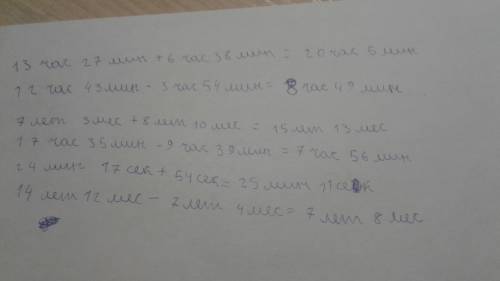 13 час 27 мин + 6 час 38 мин = 20 час 5 мин
12 час 43 мин - 3 час 54 мин = 8 час 49 мин
7 лет 3 мес + 8 лет 10 мес = 15 лет 13 мес
17 час 35 мин - 9 час 39 мин = 7 час 56 мин
24 мин 17 сек + 54 сек = 25 мин 11 сек
14 лет 12 мес - 7 лет 4 мес = 7 лет 8 мес